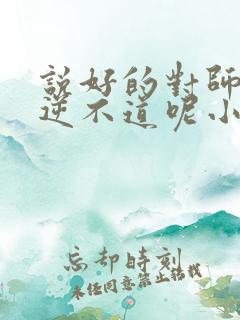 說好的對師
逆不道呢小
忘却時刻
未任同意禁止結我